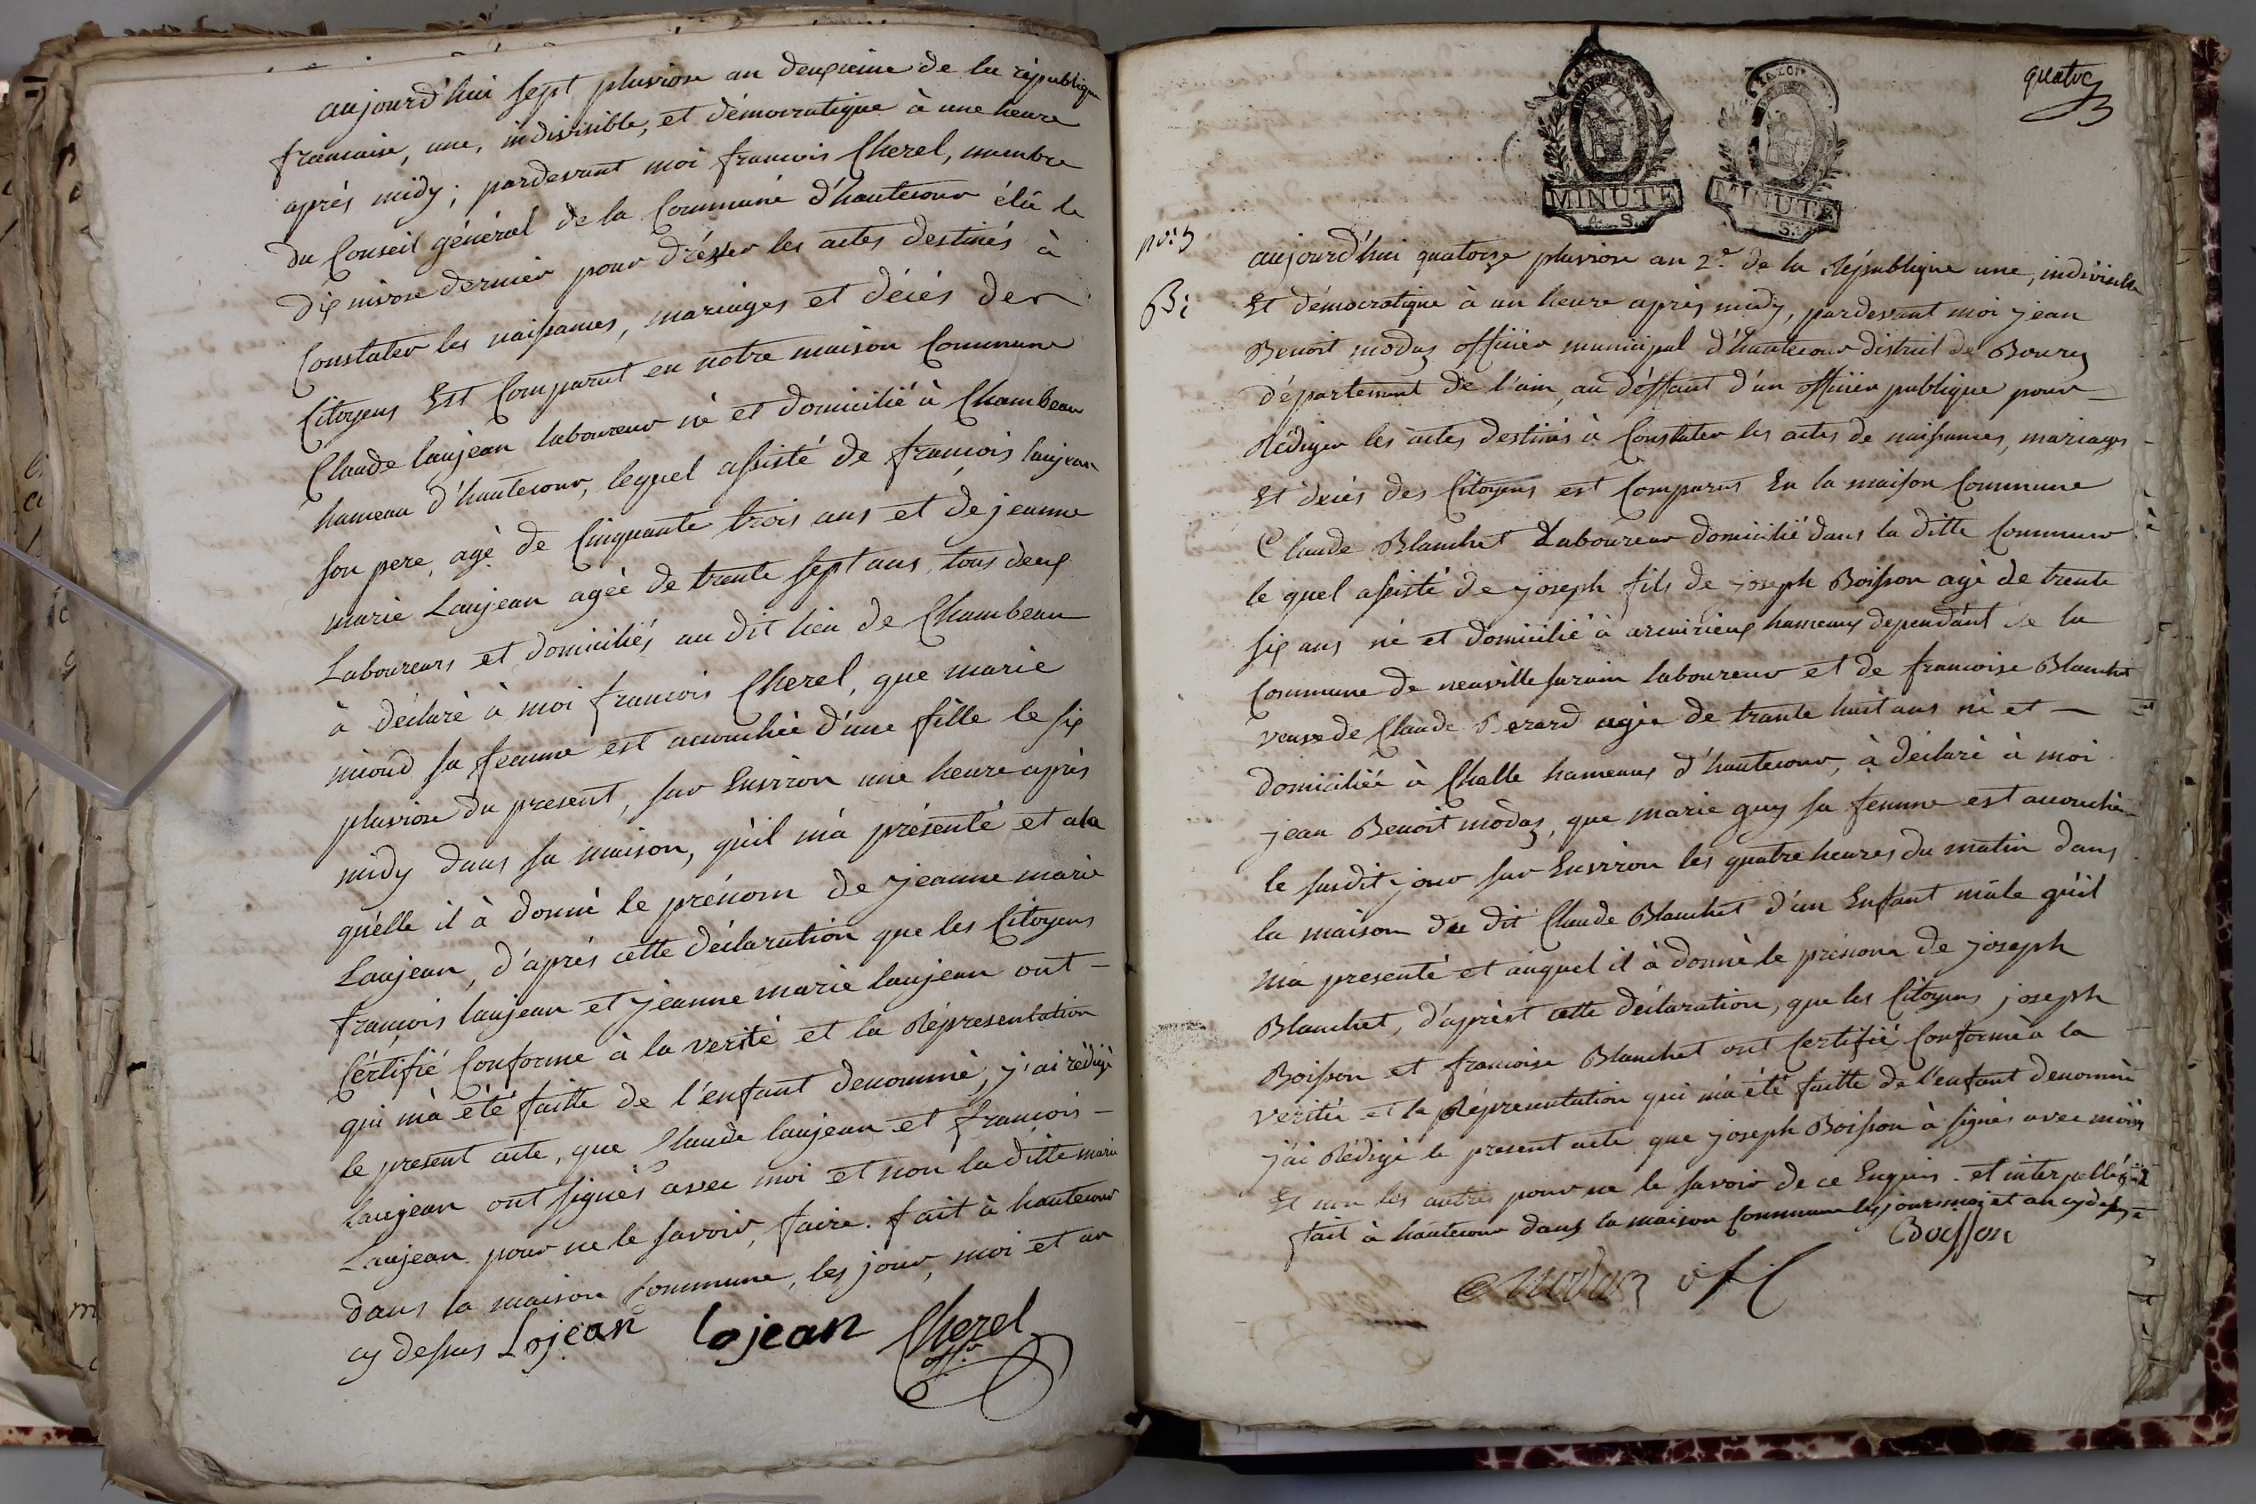 aujourd'hui sept pluviose an deuxieme de la république
francaise, une, indivisible, et démocratique à une heure
après midy; pardevant moi francois Cherel, membre
du Conseil général de la Commune d'hautecour élû le
dix nivose dernier pour drésser les actes destinés à
Constater les naissances, mariages et décés des
Citoyens Est Comparut en notre maison Commune
Claude laujean laboureur né et domicilié à Chambeau
hameau d'hautecour, lequel assisté de francois laujean
son pere, agé de Cinquante trois ans et de jeanne
marie Laujean agée de trente sept ans, tous deux
Laboureurs et domiciliés au dit lieu de Chambeau
à déclaré à moi francois Cherel, que marie
nioud sa femme est accouchée d'une fille le six
pluviose du present, sur Environ une heure après
midy dans sa maison, qu'il m'a présenté et a la
qu'elle il à donné le prénom de jeanne marie
Laujean, d'aprés cette déclaration que les Citoyens
francois laujean et jeanne marie laujean ont -
Cértifié Conforme à la verité et la Répresentation
qui m'à été faitte de l'enfant denommé, j'ai rédigé
le present acte, que Claude laujean et francois -
Laujean ont signés avec moi et non la ditte marie
Laujean pour ne le savoir, faire. fait à hautecour
dans la maison Commune, les jour, moi et an
cy dessus Lojean Lojean Cherel
offr
quatre
MINUTE
4. S.
MINUTE
S.
aujourd'hui quatorze pluviose an 2e de la République une, indivisible
Et démocratique à un heure après midy, pardevant moi jean
Benoit modas officier municipal d'hautecour district de Bourg
département de l'ain, au déffaut d'un officier publique pour -
Rédiger les actes destinés à Constater les actes de naissances, mariages -
Et décés des Citoyens est Comparut En la maison Commune
Claude Blanchet Laboureur domicilié dans la ditte Commune
le quel assisté de joseph fils de joseph Boisson agé de trente
six ans né et domicilié à arcuirieux hameaux dependant de la
Commune de neuville surain laboureur et de francoise Blanchet
veuve de Claude Berard agée de trante huit ans né et -
domiciliée à Challe hameaux d'hautecour, à déclaré à moi
jean Benoit modas, que marie guy sa femme est accouchée
le susdit jour sur Environ les quatre heures du matin dans
la maison du dit Claude Blanchet d'un Enfant mâle qu'il
m'a presenté et auquel il à donné le prénom de joseph
Blanchet, d'aprèst cette déclaration, que les Citoyens joseph
Boisson et francoise Blanchet ont Certifié Conforme à la
verité et la Répresentation qui m'à été faitte de l'enfant denommé
j'ai Rédigé le present acte que joseph Boisson à signés avec moi
Et non les autres pour ne le savoir de ce Enquis et interpellés
fait à hautecour dans la maison Commune les jour moi et an cy dessus
Boisson
modas off